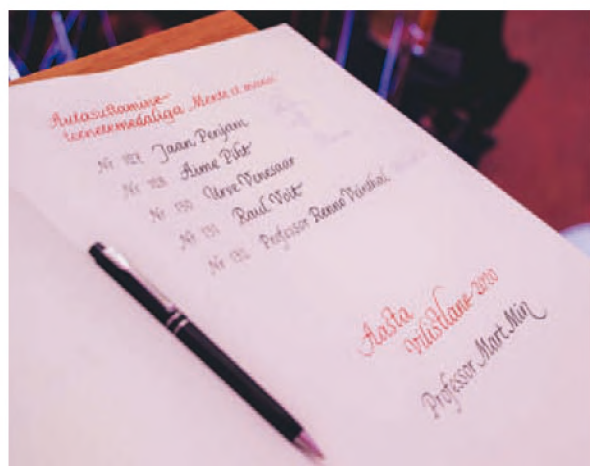 Autasustamine
teenetemedaliga Mente et manu
Nr Jaan Penjam
Nr Aime Piht
Nr 130 Urve Venesaar
Nr 131 Raul Voit
Nr 132 Professor Renno Veinthal
Aasta
Vilistlane 2020
Professor Mart Min